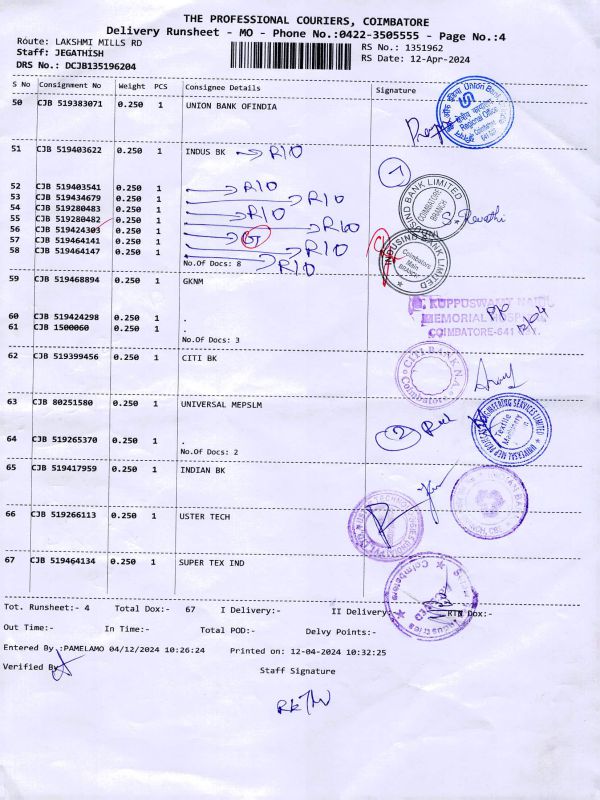 THE PROFESSIONAL COURIERS, COIMBATORE
Delivery Runsheet - MO - Phone No.:0422-3505555 - Page No.:4
Route: LAKSHMI MILLS RD
RS No.: 1351962
Staff: JEGATHISH
RS Date: 12-Apr-2024
DRS No.: DCJB135196204
S No Consignment No Weight PCS Consignee Details Signature
50 CJB 519383071 0.250 1 UNION BANK OFINDIA
Union Bank
Regional Office
Coimbatore
51 CJB 519403622 0.250 1 INDUS BK → R10
1
52 CJB 519403541 0.250 1 → R10
53 CJB 519434679 0.250 1 → R10
54 CJB 519280483 0.250 1 → R10
55 CJB 519280482 0.250 1 → R10
56 CJB 519424303 0.250 1 → G
57 CJB 519464141 0.250 1 → R10
58 CJB 519464147 0.250 1 → R10
No.Of Docs: 8
INDUSIND BANK LIMITED
COIMBATORE BRANCH
S. Revathi
INDUSIND BANK LIMITED
Coimbatore Main BRANCH
59 CJB 519468894 0.250 1 GKNM
KUPPUSWAMY NAIDU
MEMORIAL HOSPITAL
COIMBATORE-641
60 CJB 519424298 0.250 1 .
61 CJB 1500060 0.250 1 .
No.Of Docs: 3
62 CJB 519399456 0.250 1 CITI BK
CITI BANK N.A.
Coimbatore
63 CJB 80251580 0.250 1 UNIVERSAL MEPSLM
2
ENGINEERING SERVICES LIMITED
UNIVERSAL MEP
Textile Machinery
64 CJB 519265370 0.250 1 .
No.Of Docs: 2
65 CJB 519417959 0.250 1 INDIAN BK
66 CJB 519266113 0.250 1 USTER TECH
67 CJB 519464134 0.250 1 SUPER TEX IND
Coimbatore
Industries
Tot. Runsheet:- 4 Total Dox:- 67 I Delivery:- II Delivery:- RTN Dox:-
Out Time:- In Time:- Total POD:- Delvy Points:-
Entered By :PAMELAMO 04/12/2024 10:26:24 Printed on: 12-04-2024 10:32:25
Verified By
Staff Signature